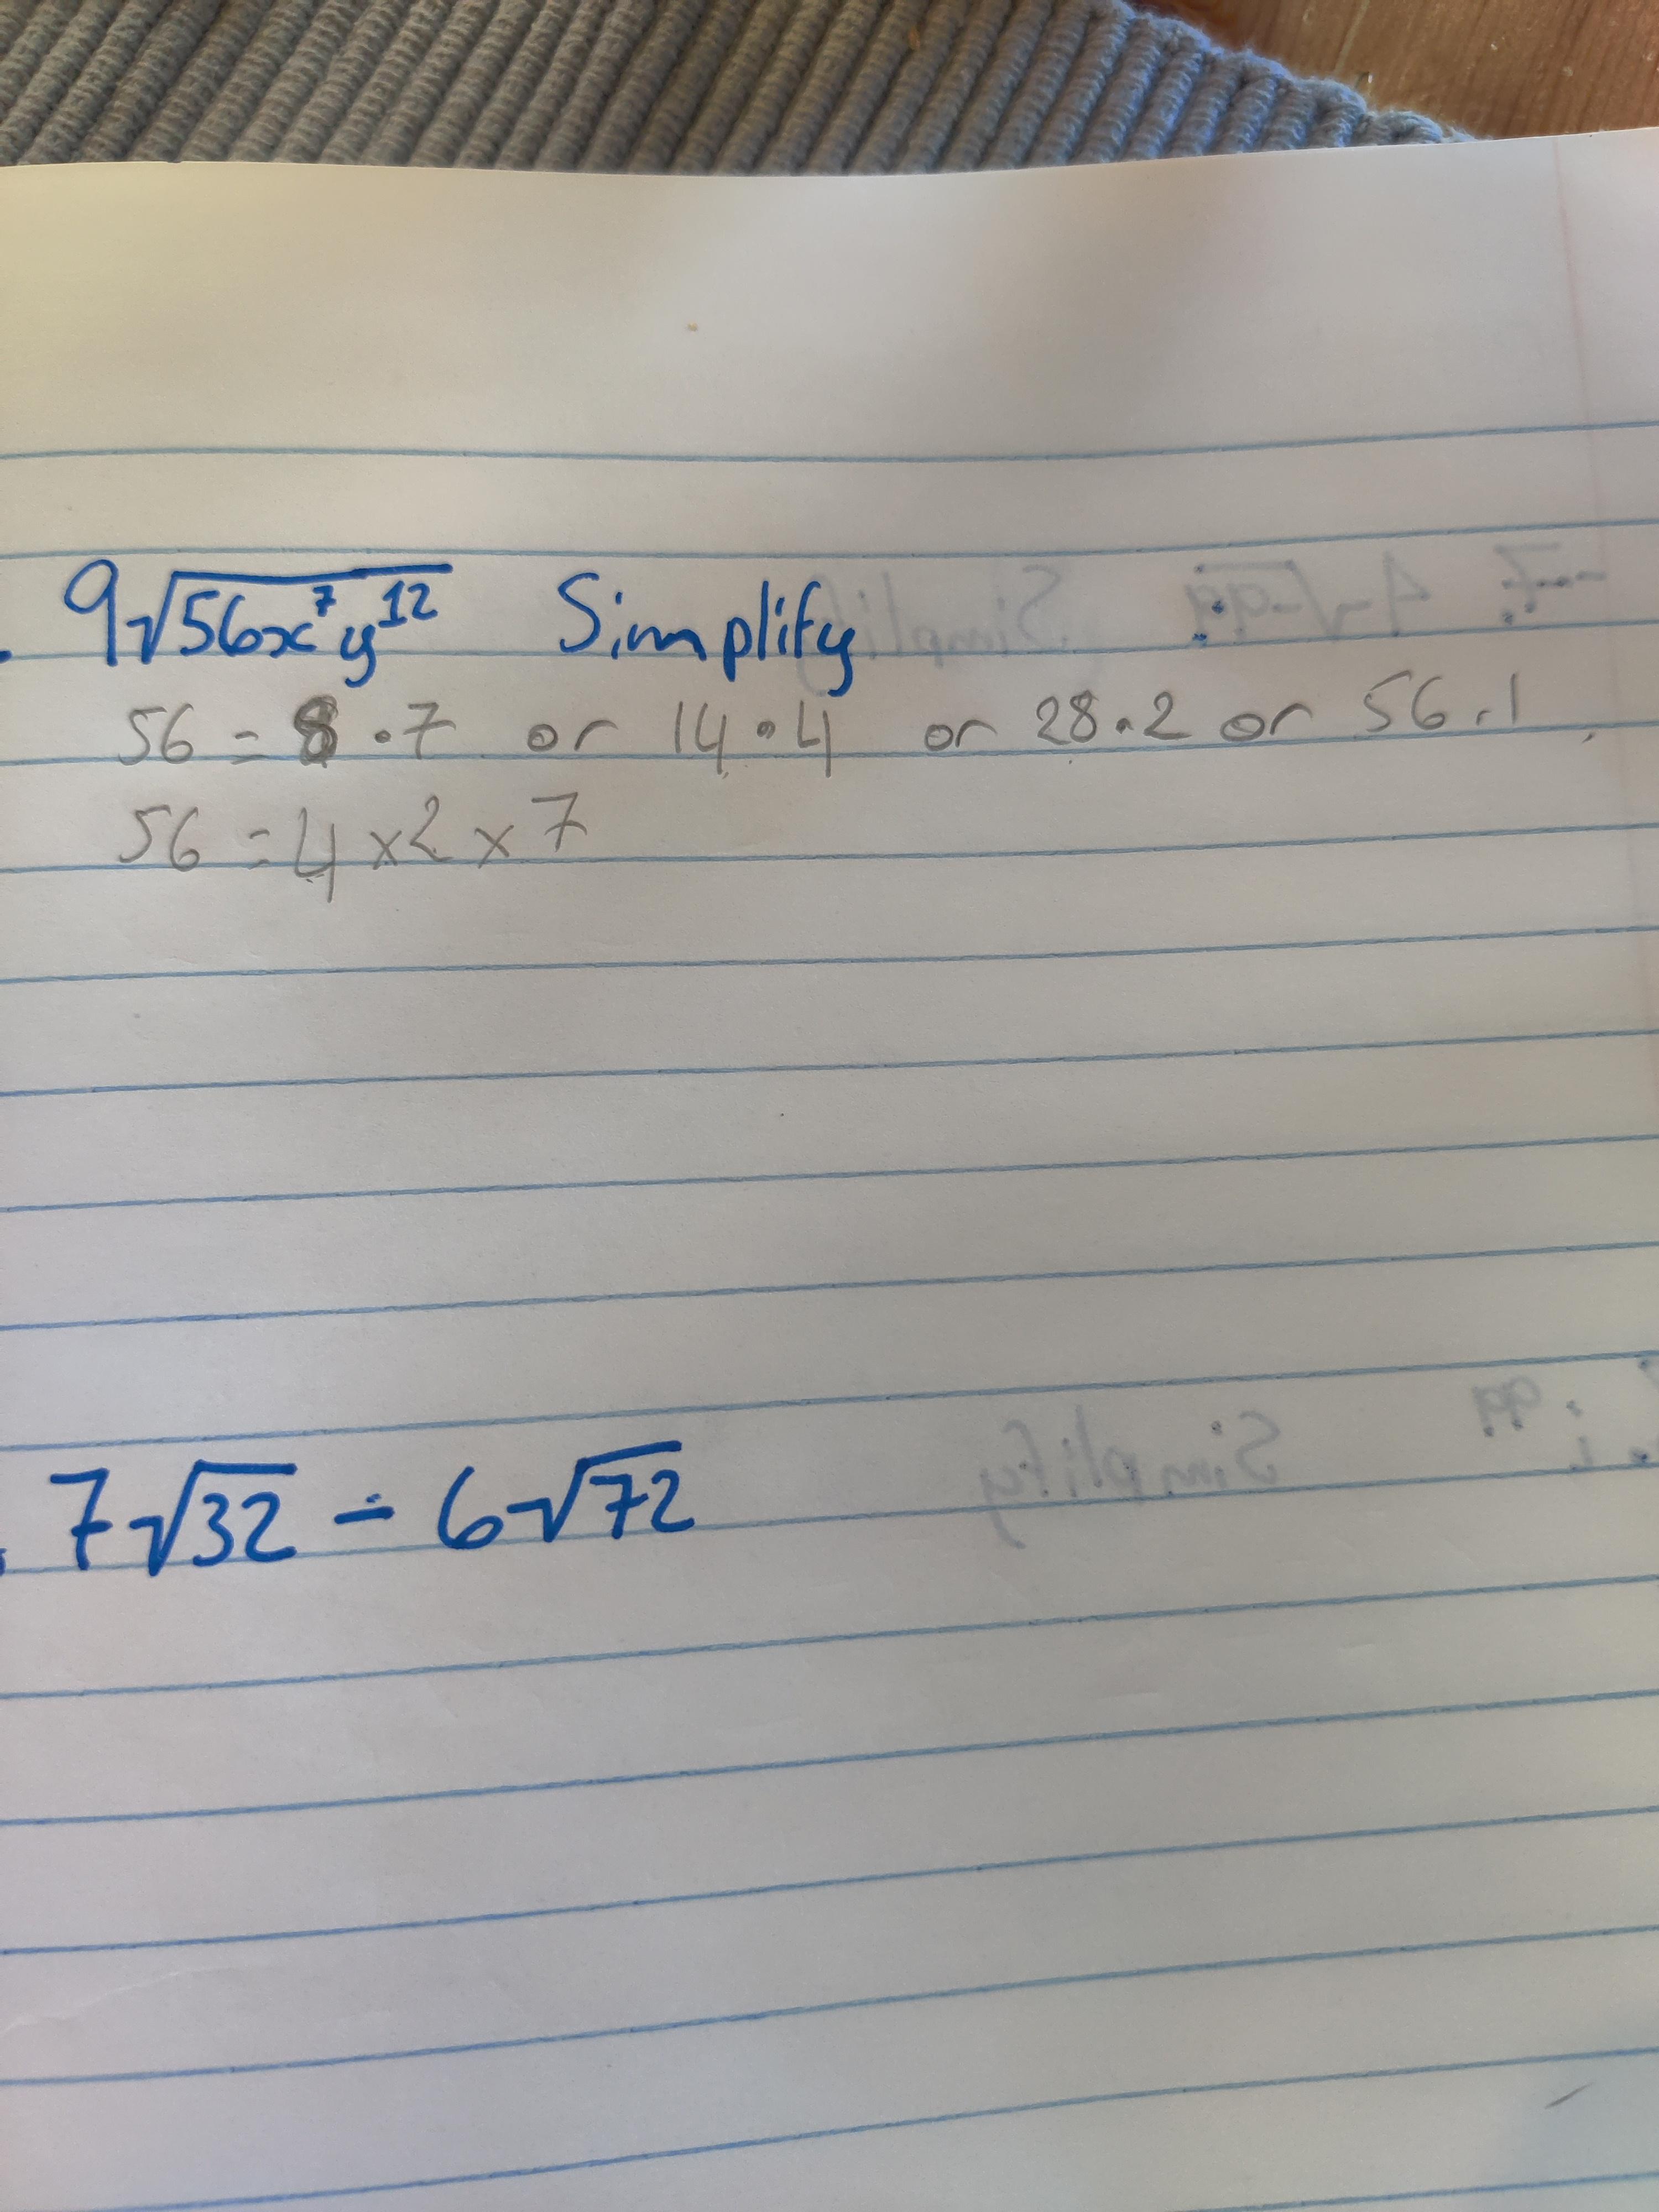 . 9√56x⁷y¹² Simplify
56 = 8 · 7 or 14 · 4 or 28 · 2 or 56 . 1
56 = 4 x 2 x 7
. 7√32 - 6√72